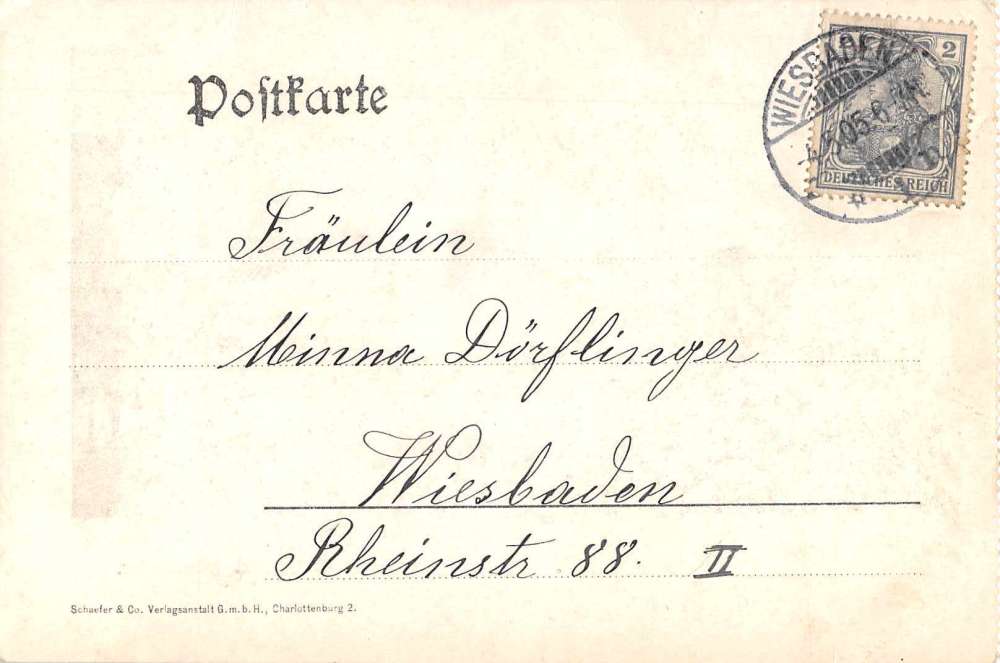 Postkarte
WIESBADEN
2
DEUTSCHES REICH
Fräulein
Minna Dörflinger
Wiesbaden
Rheinstr 88. II
Schaefer & Co. Verlagsanstalt G.m.b.H., Charlottenburg 2.